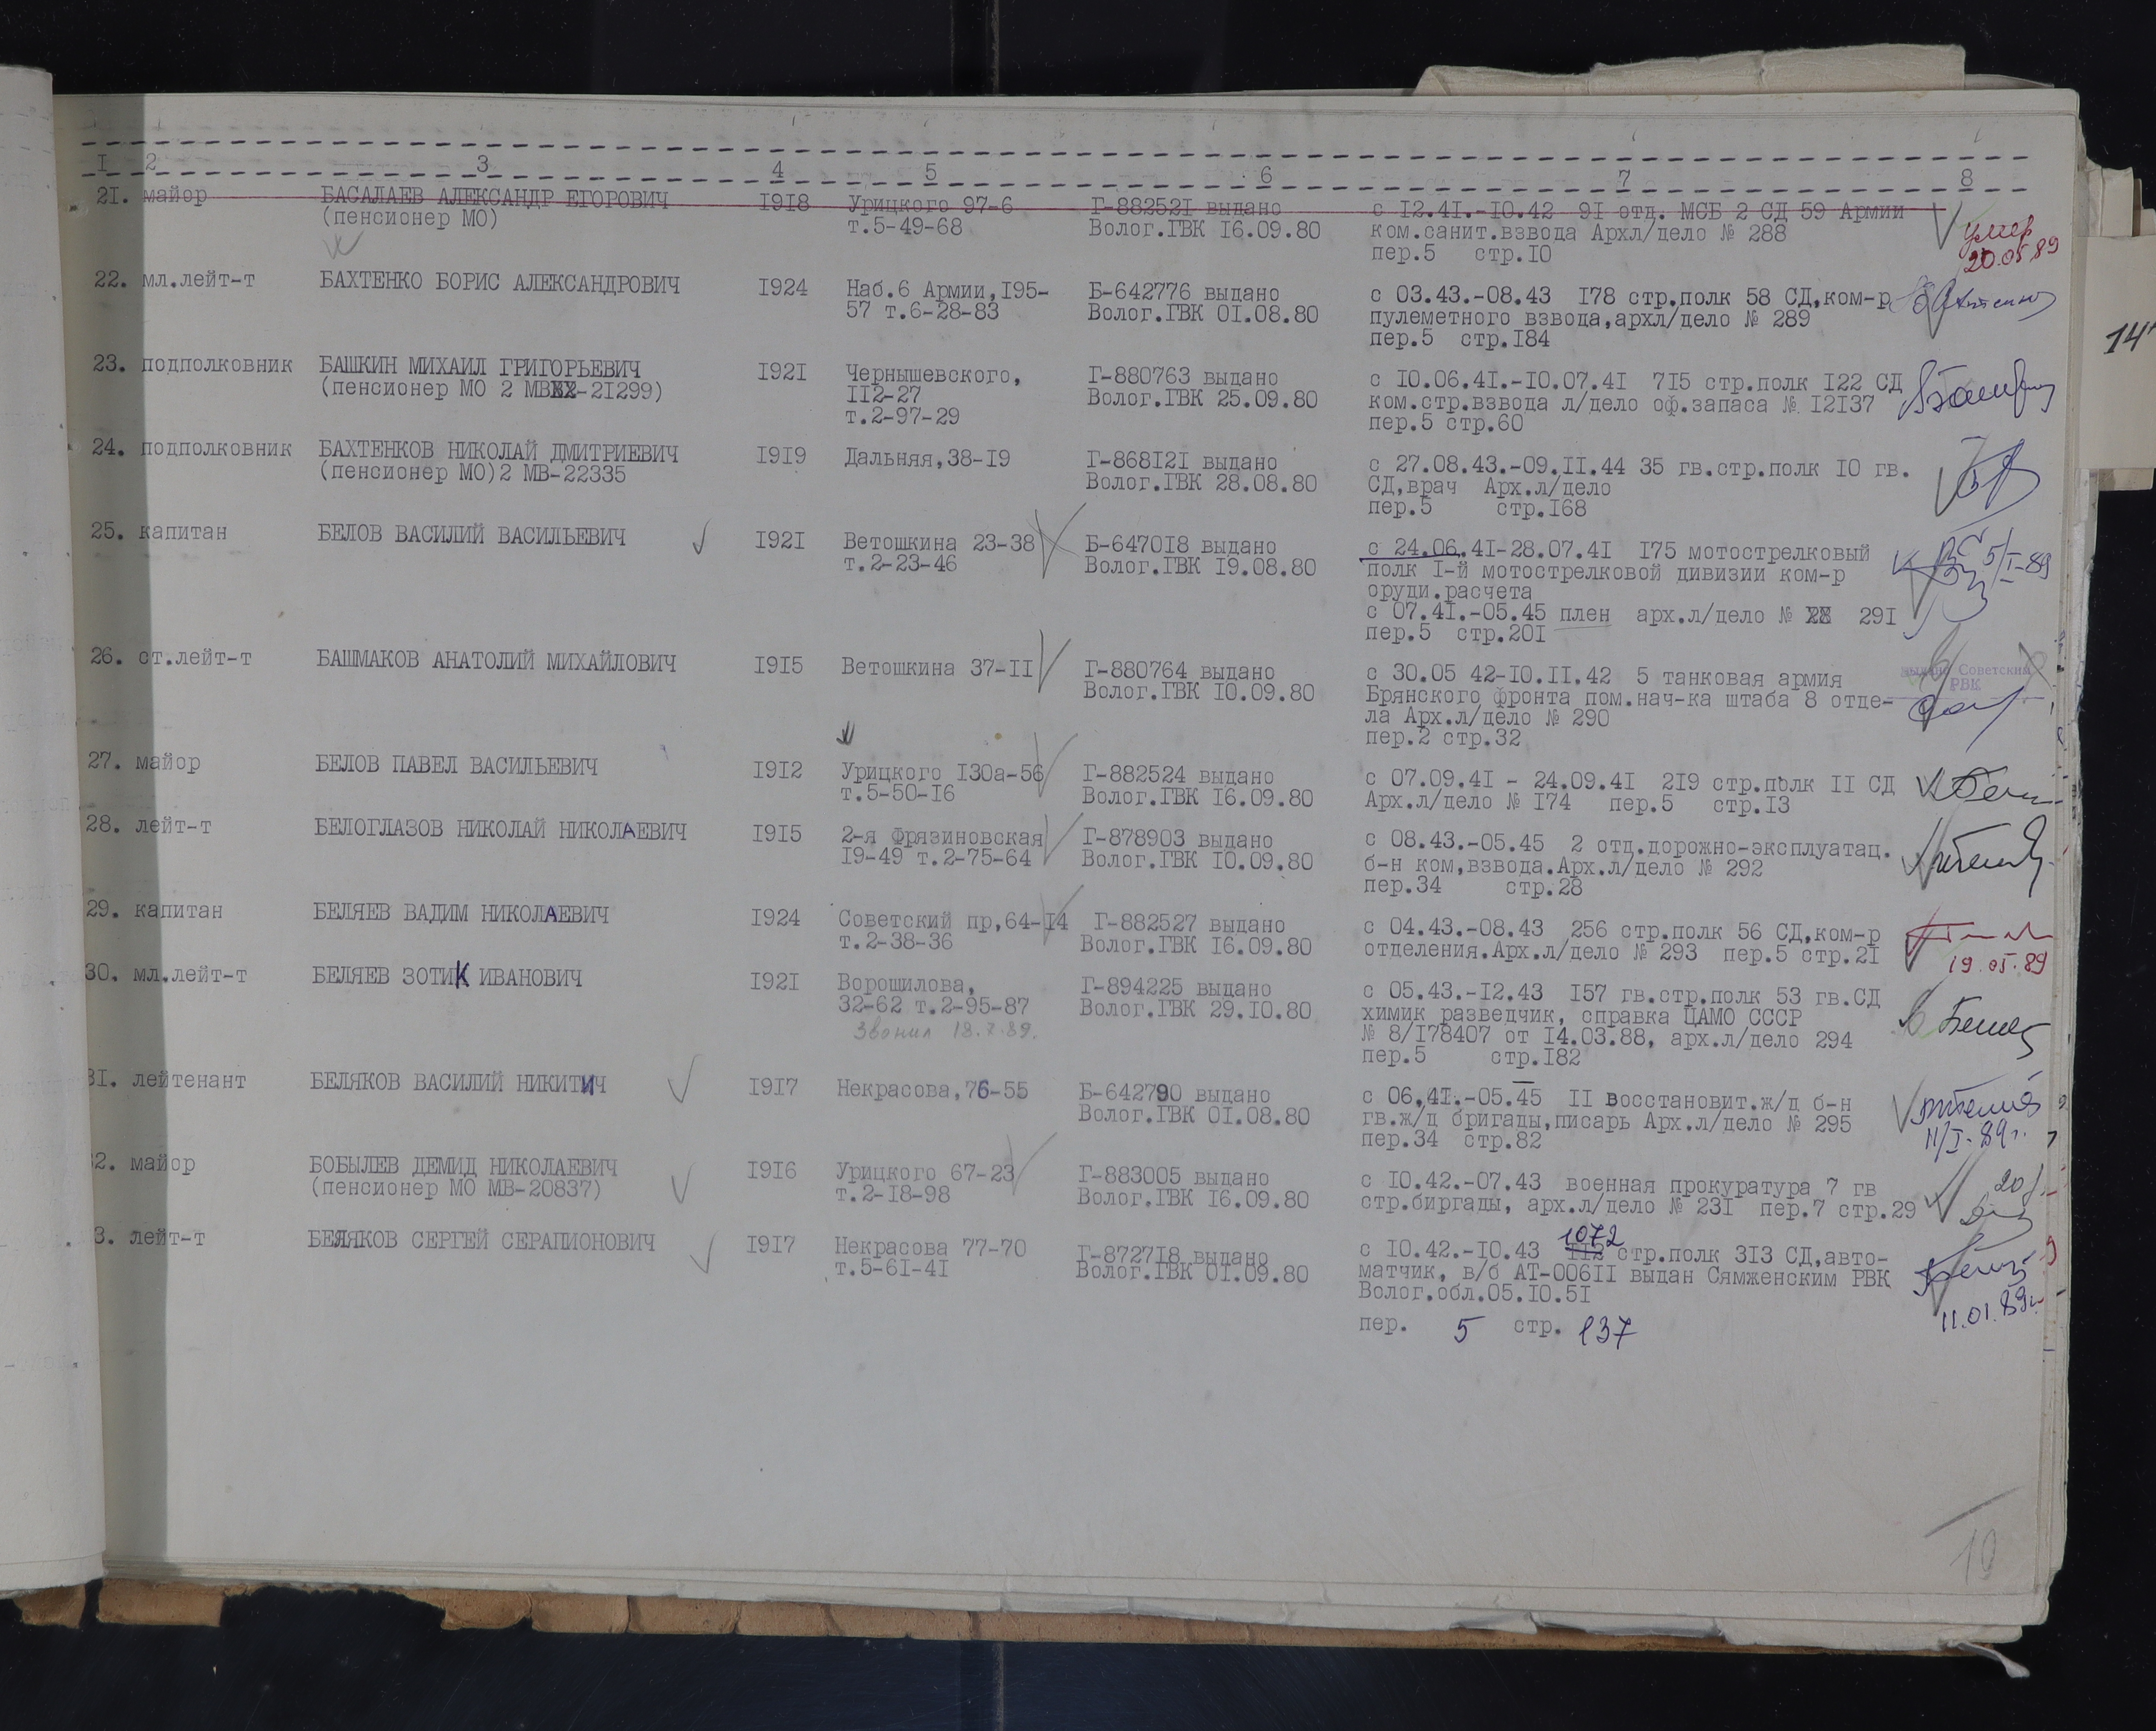 I 2 3 4 5 6 7 8
2I. майор БАСАЛАЕВ АЛЕКСАНДР ЕГОРОВИЧ I9I8 Урицкого 97-6 Г-88252I выдано с I2.4I.-I0.42 9I отд. МСБ 2 СД 59 Армии
(пенсионер МО) т.5-49-68 Волог.ГВК I6.09.80 ком.санит.взвода Архл/дело № 288 умер
пер.5 стр.I0 20.05.89
22. мл.лейт-т БАХТЕНКО БОРИС АЛЕКСАНДРОВИЧ I924 Наб.6 Армии,I95- Б-642776 выдано с 03.43.-08.43 I78 стр.полк 58 СД,ком-р
57 т.6-28-83 Волог.ГВК 0I.08.80 пулеметного взвода,архл/дело № 289
пер.5 стр.I84
23. подполковник БАШКИН МИХАИЛ ГРИГОРЬЕВИЧ I92I Чернышевского, Г-880763 выдано с I0.06.4I.-I0.07.4I 7I5 стр.полк I22 СД
(пенсионер МО 2 МВ-2I299) II2-27 Волог.ГВК 25.09.80 ком.стр.взвода л/дело оф.запаса № I2I37
т.2-97-29 пер.5 стр.60
24. подполковник БАХТЕНКОВ НИКОЛАЙ ДМИТРИЕВИЧ I9I9 Дальняя,38-I9 Г-868I2I выдано с 27.08.43.-09.II.44 35 гв.стр.полк I0 гв.
(пенсионер МО)2 МВ-22335 Волог.ГВК 28.08.80 СД,врач Арх.л/дело
пер.5 стр.I68
25. капитан БЕЛОВ ВАСИЛИЙ ВАСИЛЬЕВИЧ I92I Ветошкина 23-38 Б-6470I8 выдано с 24.06.4I-28.07.4I I75 мотострелковый
т.2-23-46 Волог.ГВК I9.08.80 полк I-й мотострелковой дивизии ком-р 5/I-89
оруди.расчета
с 07.4I.-05.45 плен арх.л/дело № 29I
пер.5 стр.20I
26. ст.лейт-т БАШМАКОВ АНАТОЛИЙ МИХАЙЛОВИЧ I9I5 Ветошкина 37-II Г-880764 выдано с 30.05 42-I0.II.42 5 танковая армия выдано Советским
Волог.ГВК I0.09.80 Брянского фронта пом.нач-ка штаба 8 отде- РВК
ла Арх.л/дело № 290
пер.2 стр.32
27. майор БЕЛОВ ПАВЕЛ ВАСИЛЬЕВИЧ I9I2 Урицкого I30а-56 Г-882524 выдано с 07.09.4I - 24.09.4I 2I9 стр.полк II СД
т.5-50-I6 Волог.ГВК I6.09.80 Арх.л/дело № I74 пер.5 стр.I3
28. лейт-т БЕЛОГЛАЗОВ НИКОЛАЙ НИКОЛАЕВИЧ I9I5 2-я Фрязиновская Г-878903 выдано с 08.43.-05.45 2 отд.дорожно-эксплуатац.
I9-49 т.2-75-64 Волог.ГВК I0.09.80 б-н ком,взвода.Арх.л/дело № 292
пер.34 стр.28
29. капитан БЕЛЯЕВ ВАДИМ НИКОЛАЕВИЧ I924 Советский пр,64-I4 Г-882527 выдано с 04.43.-08.43 256 стр.полк 56 СД,ком-р
т.2-38-36 Волог.ГВК I6.09.80 отделения.Арх.л/дело № 293 пер.5 стр.2I 19.05.89
30. мл.лейт-т БЕЛЯЕВ ЗОТИК ИВАНОВИЧ I92I Ворошилова, Г-894225 выдано с 05.43.-I2.43 I57 гв.стр.полк 53 гв.СД
32-62 т.2-95-87 Волог.ГВК 29.I0.80 химик разведчик, справка ЦАМО СССР
Звонил 18.7.89. № 8/I78407 от I4.03.88, арх.л/дело 294
пер.5 стр.I82
3I. лейтенант БЕЛЯКОВ ВАСИЛИЙ НИКИТИЧ I9I7 Некрасова,76-55 Б-642790 выдано с 06,4I.-05.45 II восстановит.ж/д б-н
Волог.ГВК 0I.08.80 гв.ж/д бригады,писарь Арх.л/дело № 295
пер.34 стр.82 11/I-89г.
2. майор БОБЫЛЕВ ДЕМИД НИКОЛАЕВИЧ I9I6 Урицкого 67-23 Г-883005 выдано с I0.42.-07.43 военная прокуратура 7 гв
(пенсионер МО МВ-20837) т.2-I8-98 Волог.ГВК I6.09.80 стр.биргады, арх.л/дело № 23I пер.7 стр.29
1072
3. лейт-т БЕЛЯКОВ СЕРГЕЙ СЕРАПИОНОВИЧ I9I7 Некрасова 77-70 Г-8727I8 выдано с I0.42.-I0.43 II2 стр.полк 3I3 СД,авто-
т.5-6I-4I Волог.ГВК 0I.09.80 матчик, в/б АТ-006II выдан Сямженским РВК
Волог.обл.05.I0.5I 11.01.89г.
пер. 5 стр. 137
14
10